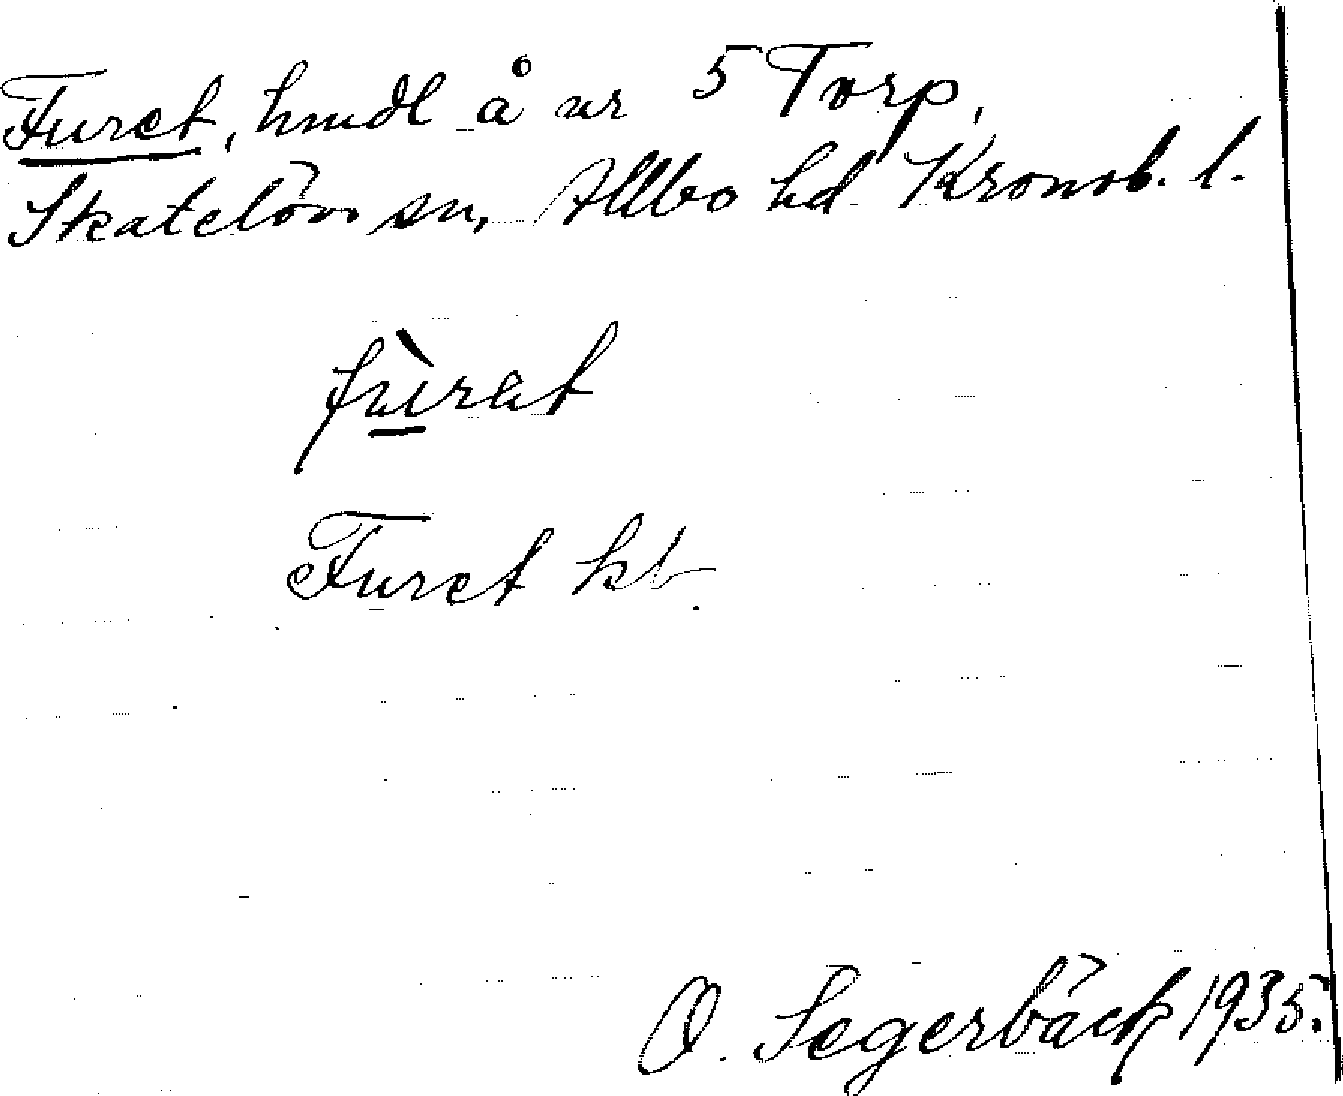 Furet, hmdl å nr 5 Torp,
Skatelövs sn, Allbo hd Kronob. l.
fùrat
Furet kb.
O. Segerbäck 1935.